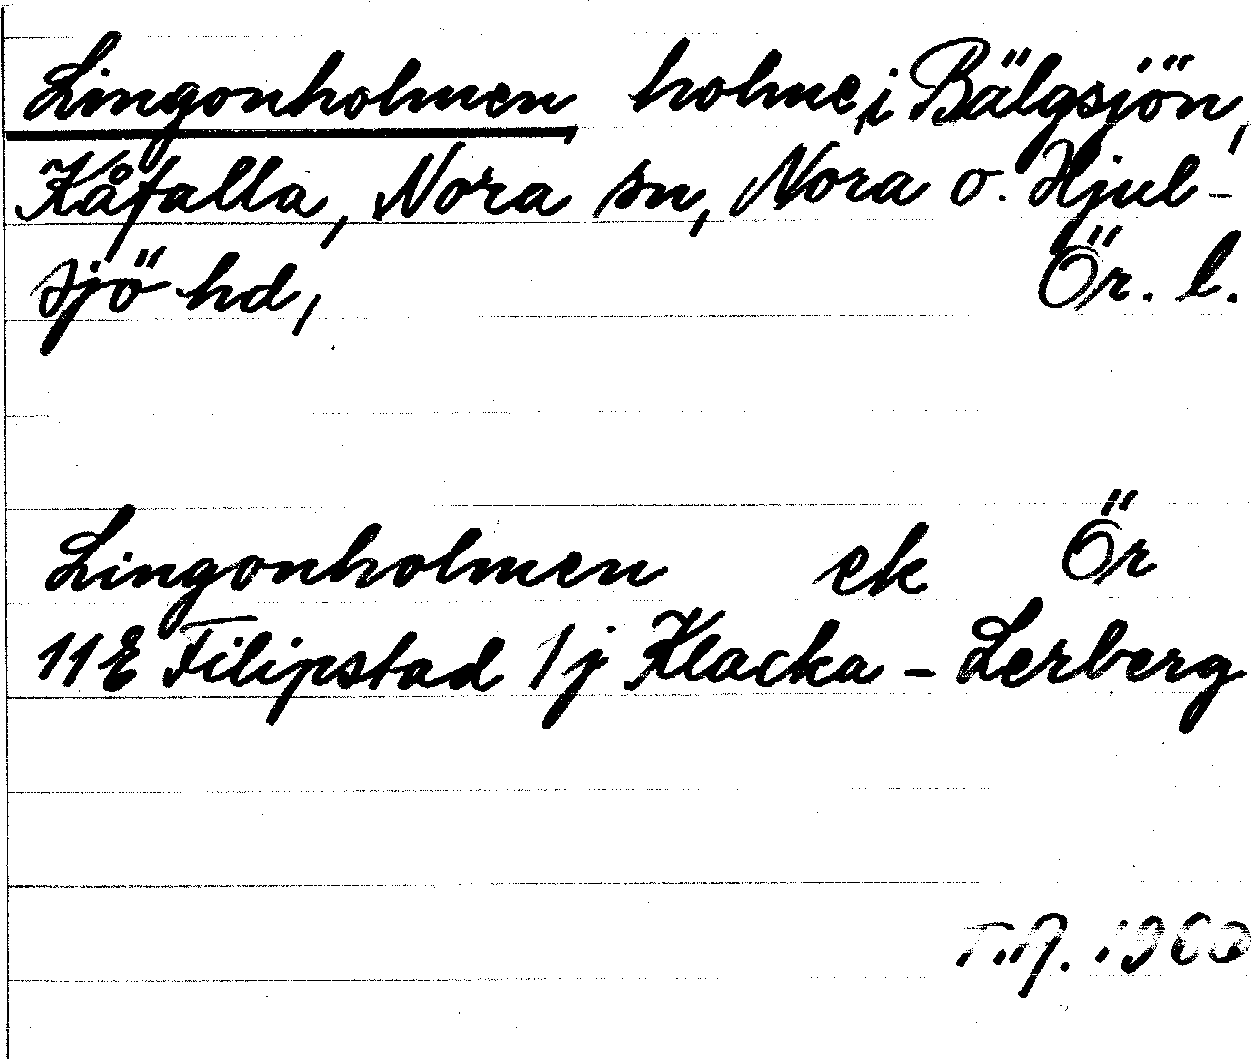 Lingonholmen, holme, i Bälgsjön,
Kåfalla, Nora sn, Nora o. Hjul-
sjö hd, Ör. l.
Lingonholmen ek Ör
11E Filipstad 1j Klacka - Lerberg
1960